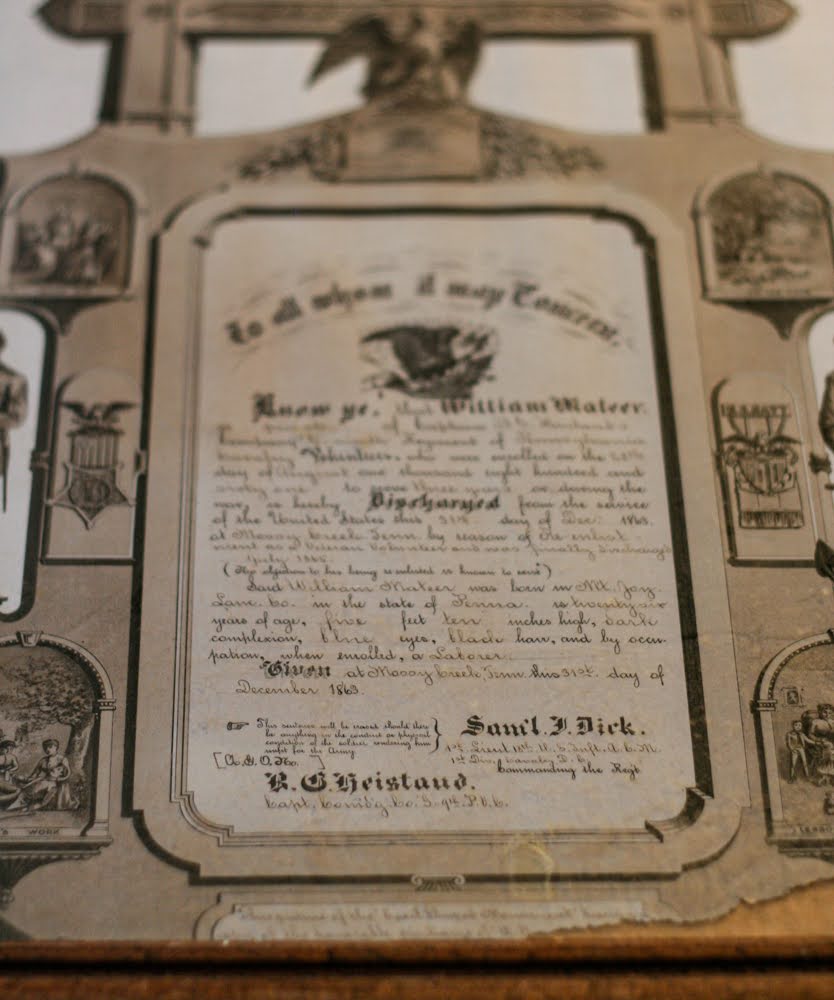 To all whom it may Concern.
Know ye, that William Mateer.
a private of Captain
Company Regiment of Pennsylvania
Volunteers, who was enrolled on the
day of August one thousand eight hundred and
sixty one to serve three years or during the
war, is hereby Discharged from the service
of the United States this 31st day of Dec. 1863.
at Mossy Creek Tenn by reason of Re enlist
ment as a Veteran Volunteer and was finally discharged
July
(No objection to his being re enlisted is known to exist)
Said William Mateer was born in Mt. Joy
Lanc. Co. in the state of Penna. is twenty six
years of age, five feet ten inches high, dark
complexion, blue eyes, black hair, and by occu-
pation, when enrolled, a Laborer.
Given at Mossy Creek, Tenn. this 31st. day of
December 1863.
☞ This sentence will be erased should there
be anything in the conduct or physical
condition of the soldier rendering him
unfit for the Army.
[A.G.O. No. ]
Sam'l. J. Dick.
1st. Lieut 15th. U. S. Inft. A. C. M.
1st Div. Cavalry D. C.
Commanding the Regt
R. G. Heistand.
Capt. Comd'g. Co. 9th. P. V. C.
WORK